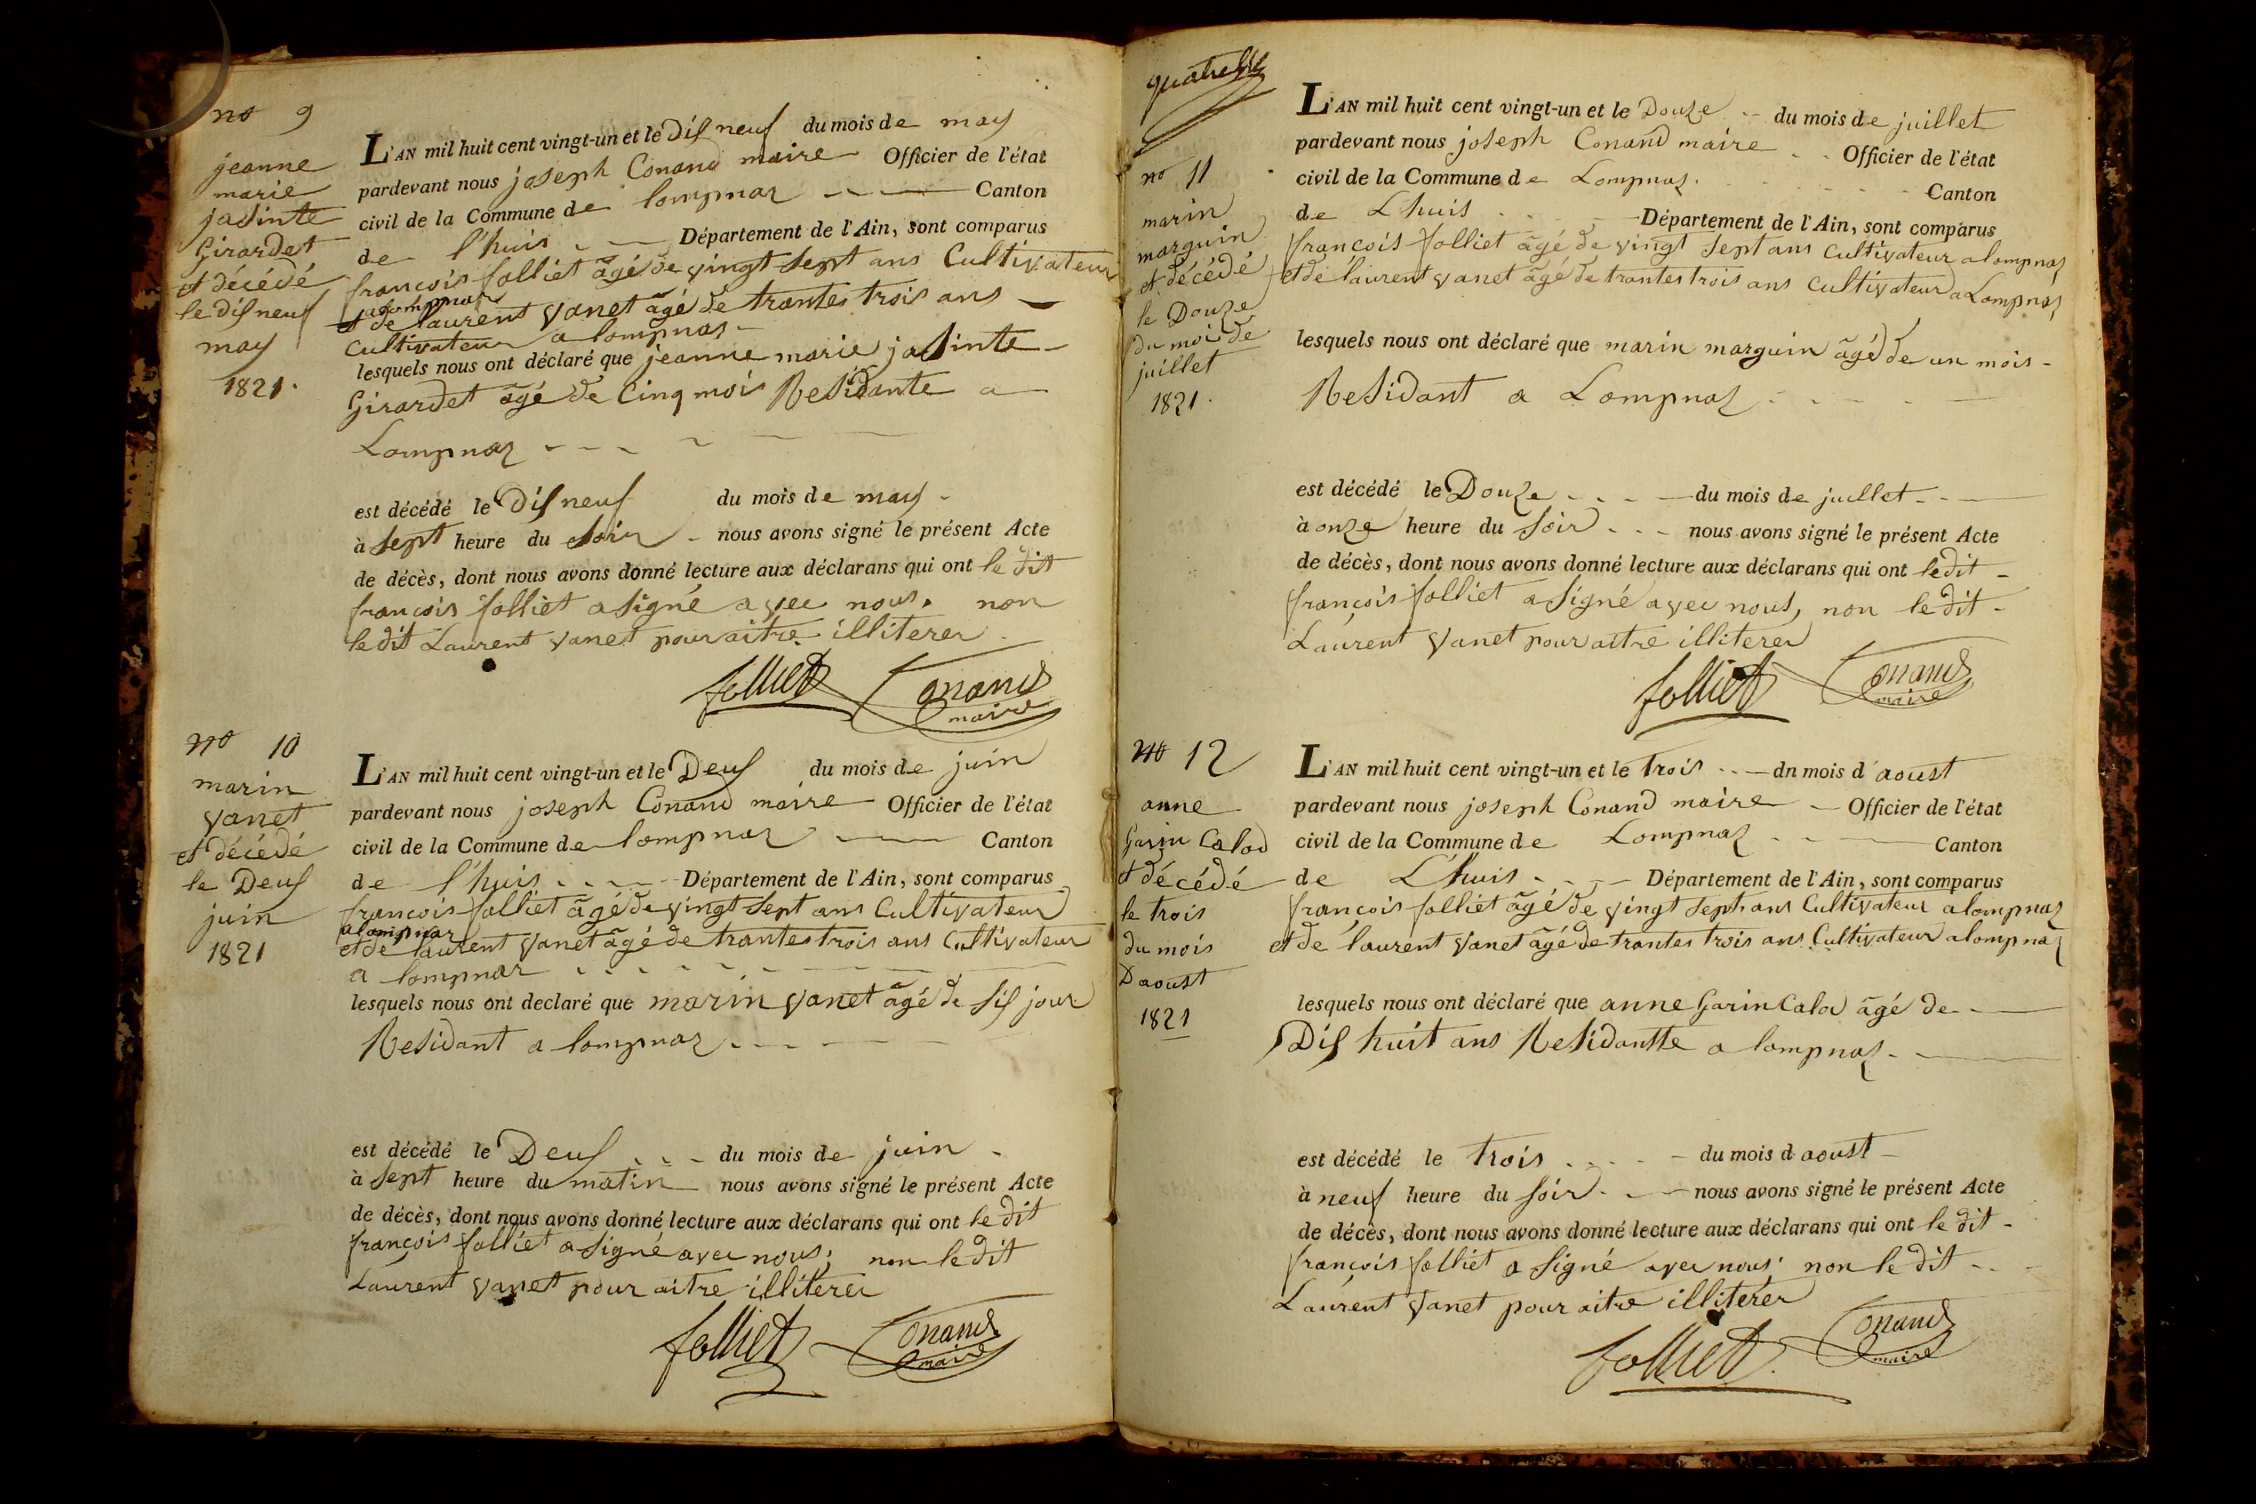 no 9
jeanne
marie
jasinte
Girardet
et décédé
le dis neuf
may
1821.
L'AN mil huit cent vingt-un et le Dis neuf du mois de may
pardevant nous joseph Conand maire Officier de l'état
civil de la Commune de lompnaz Canton
de l'huis Département de l'Ain, sont comparus
françois folliet âgé de vingt sept ans Cultivateur
a lompnaz
et de laurent vanet âgé de trantes trois ans
Cultivateur a lompnas
lesquels nous ont déclaré que jeanne marie jasinte
Girardet âgé de Cinq mois Residante a
Lompnaz
est décédé le Dis neuf du mois de may
à Sept heure du Soir nous avons signé le présent Acte
de décès, dont nous avons donné lecture aux déclarans qui ont le dit
françois folliet a Signé avec nous, non
le dit Laurent vanet pour aitre illiterer
folliet Conand
maire
no 10
marin
vanet
et décédé
le Deus
juin
1821
L'AN mil huit cent vingt-un et le Deus du mois de juin
pardevant nous joseph Conand maire Officier de l'état
civil de la Commune de lompnaz Canton
de l'huis Département de l'Ain, sont comparus
françois folliet âgé de vingt Sept ans Cultivateur
a lompnaz
et de laurent vanet âgé de trantes trois ans Cultivateur
a lompnaz
lesquels nous ont declaré que marin vanet âgé de Sis jour
Residant a lompnaz
est décédé le Deus du mois de juin
à Sept heure du matin nous avons signé le présent Acte
de décès, dont nous avons donné lecture aux déclarans qui ont le dit
françois folliet a Signé avec nous, non le dit
Laurent vanet pour aitre illiterer
folliet Conand
maire
no 11
marin
marguin
et décédé
le Douze
du moi de
juillet
1821.
L'AN mil huit cent vingt-un et le Douze du mois de juillet
pardevant nous joseph Conand maire Officier de l'état
civil de la Commune de Lompnaz Canton
de L'huis Département de l'Ain, sont comparus
françois folliet âgé de vingt Sept ans Cultivateur a lompnaz
et de laurent vanet âgé de trantes trois ans Cultivateur a Lompnaz
lesquels nous ont déclaré que marin marguin âgé de un mois
Residant a Lompnaz
est décédé le Douze du mois de juillet
à onze heure du Soir nous avons signé le présent Acte
de décès, dont nous avons donné lecture aux déclarans qui ont le dit
françois folliet a Signé avec nous, non le dit
Laurent vanet pour aitre illiterer
folliet Conand
maire
no 12
anne
Garin Calod
et décédé
le trois
du mois
D'aoust
1821
L'AN mil huit cent vingt-un et le trois dn mois d'aoust
pardevant nous joseph Conand maire Officier de l'état
civil de la Commune de Lompnaz Canton
de L'huis Département de l'Ain, sont comparus
françois folliet âgé de vingt Sept ans Cultivateur a lompnaz
et de laurent vanet âgé de trantes trois ans Cultivateur a lompnaz
lesquels nous ont déclaré que anne Garin Calod âgé de
Dis huit ans Residantte a lompnaz
est décédé le trois du mois d aoust
à neuf heure du Soir nous avons signé le présent Acte
de décès, dont nous avons donné lecture aux déclarans qui ont le dit
françois folliet a Signé avec nous. non le dit
Laurent vanet pour aitre illiterer
folliet Conand
maire